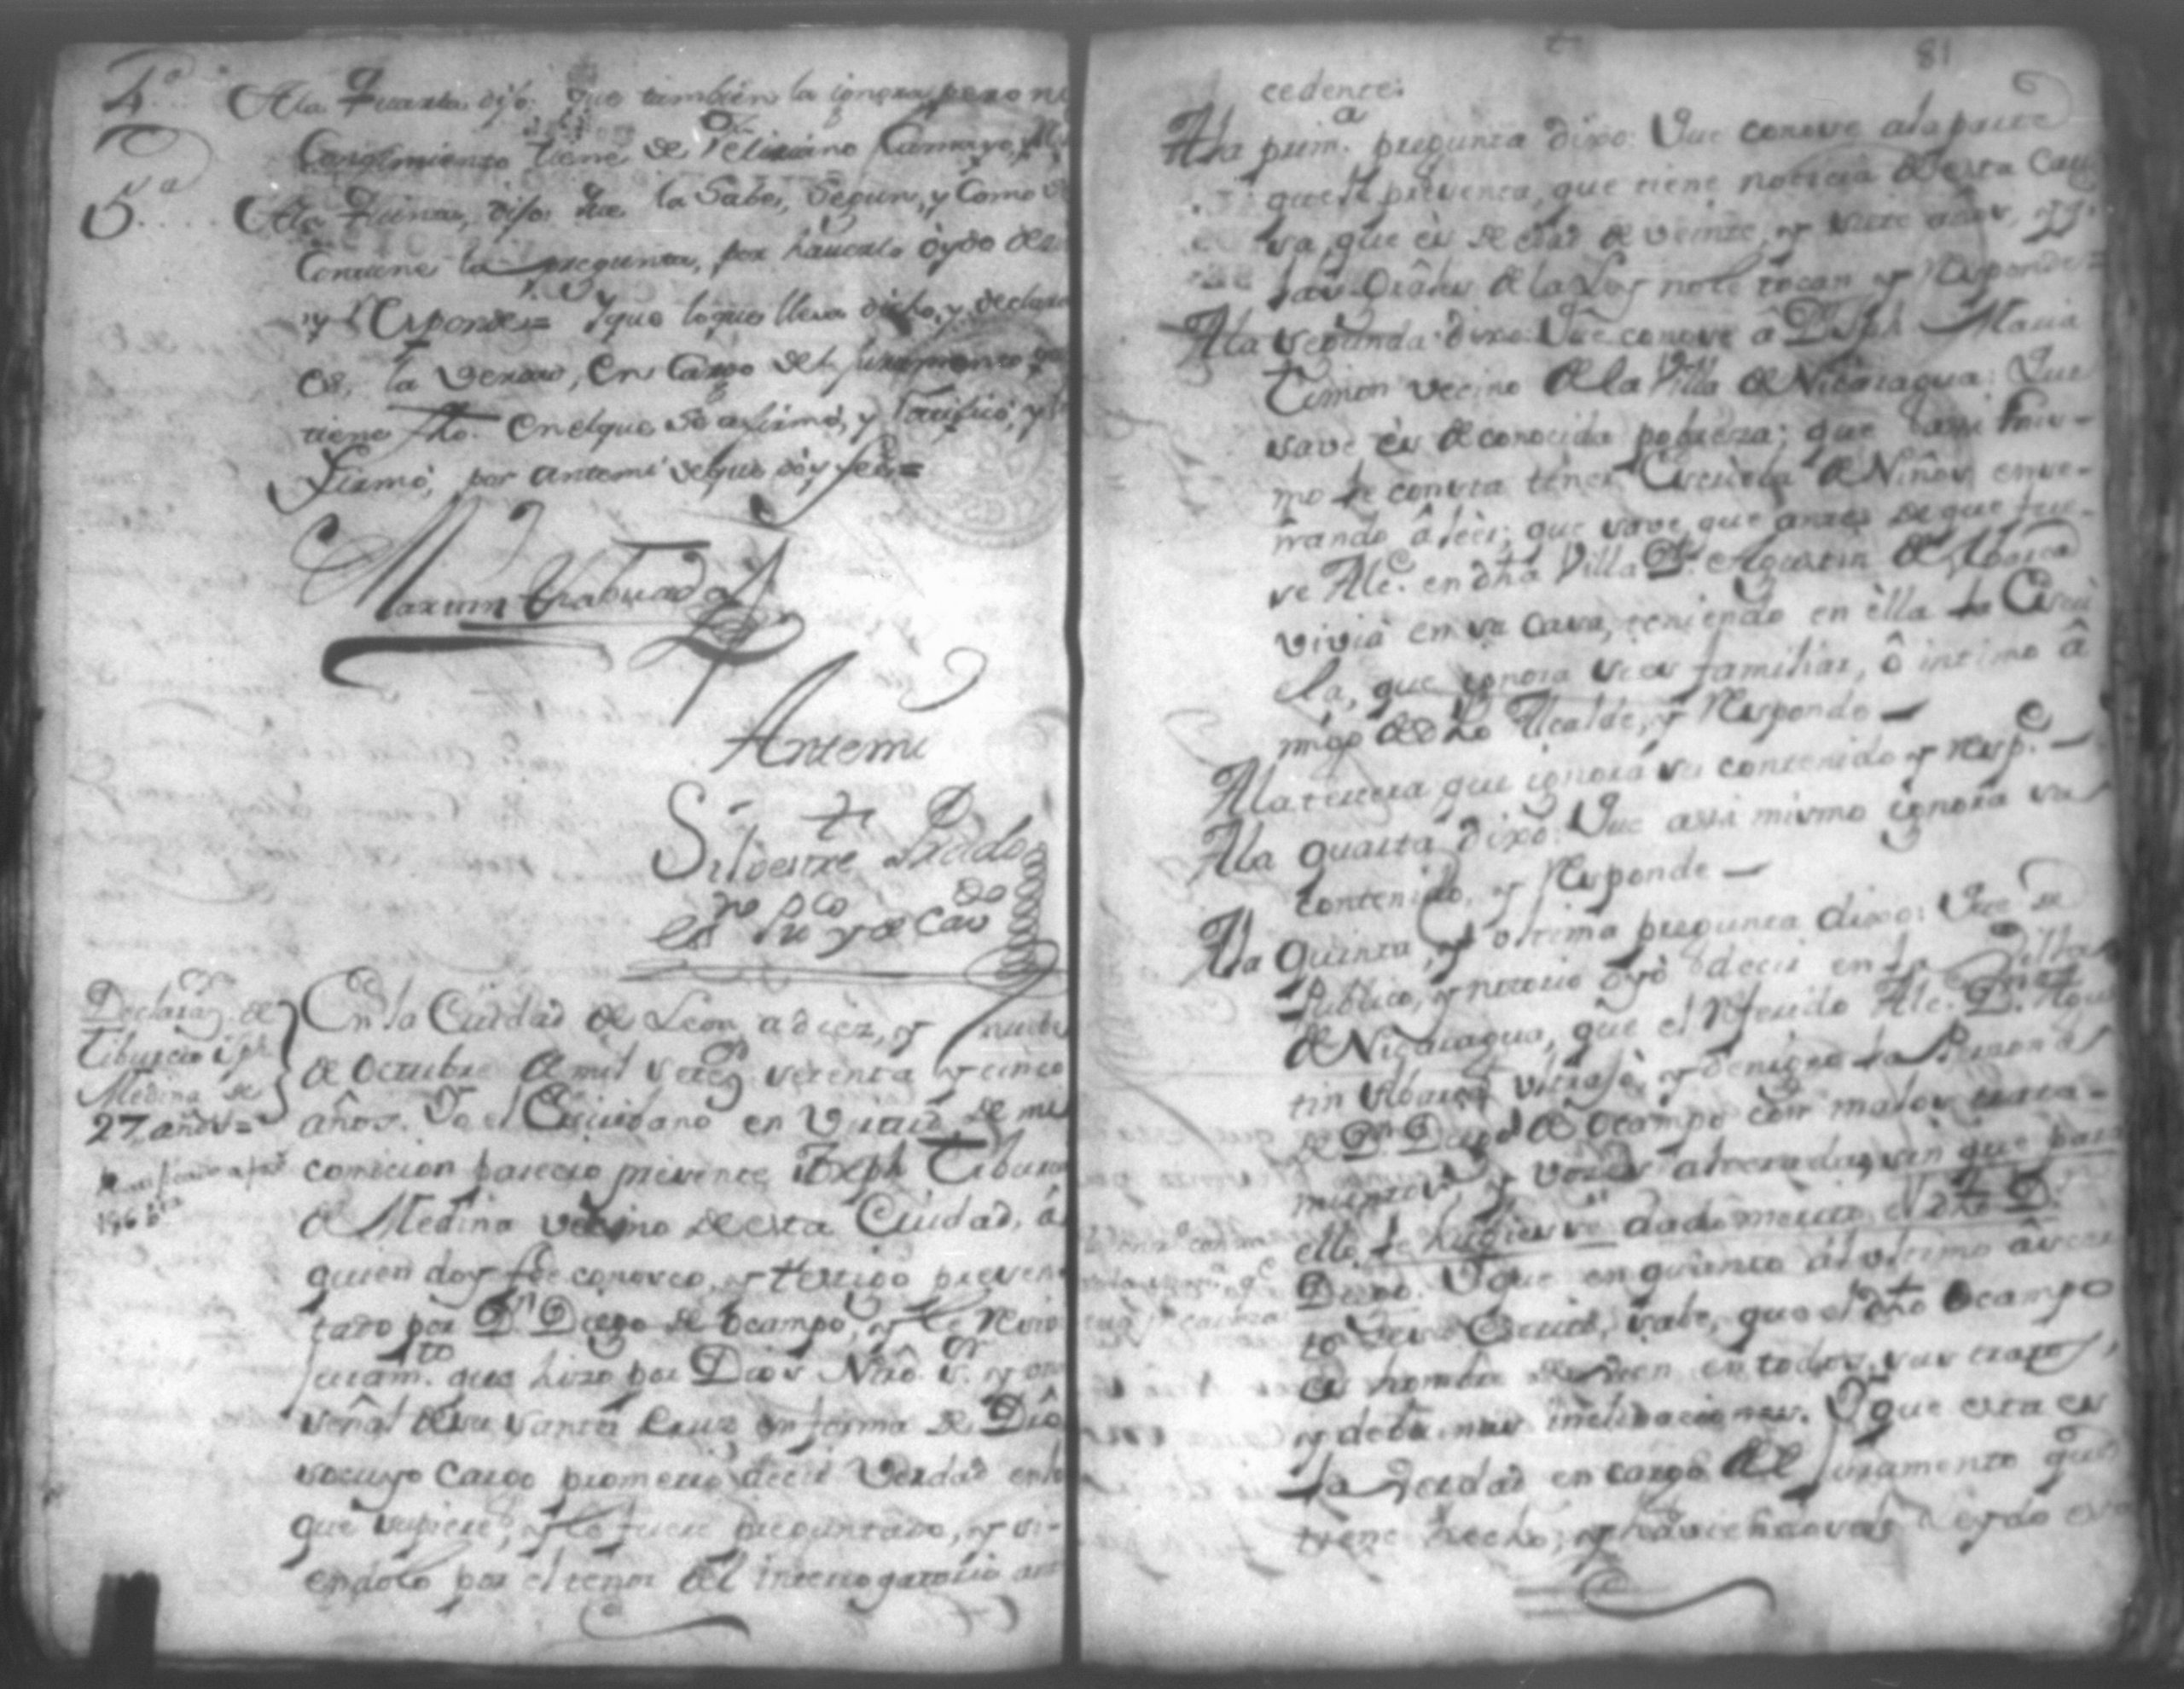 4ª
A la quarta dijo: Que tambien la ignora, pero ni
Conosimiento tiene de Feliciano Camayo,
5.ª
A la quinta, dijo: Que la Sabe, Segun, y Como se
Contiene la pregunta, por hauerlo oydo desir
y Responde= Y que loque lleva dicho, y declarado
es, la Verdad, en Cargo del Juramento que
tiene fho. en el que se afirmó, y Ratificó, y lo
Firmó, por antemi de que doy fee,=
Antemi
Silvestre Prado
esno pco y de Cavdo
Declaraz.on de
Tiburcio Jph
Medina de
27, años=
En la Ciudad de Leon, a diez, y nuebe
de Octubre de mil setes. setenta y cinco
años. Yo el Escribano en Virtud de mi
comicion parecio presente Joseph Tiburcio
de Medina vecino de esta Ciudad, â
quien doy fee conosco, y testigo presen
tado por Dn. Diego de Ocampo, y le Reciví
Juram.to que hizo por Dios Nrô. S.or y una
señal de su santa Cruz en forma de Drô.
so cuyo cargo prometio decir Verdad en lo
que supiere, y le fuere preguntado, y si-
endolo por el tenor del interrogatorio ante
81
cedente:
A la prim.a pregunta dixo: Que conose a la parte
que le presenta, que tiene noticia de esta Cau
sa, que es de edad de veinte, y siete años, y q.
las Grâles de la Ley no le tocan y Responde=
A la segunda dixo: Que conose â D. Jph Maria
Timon vecino de la Villa de Nicaragua: Que
save es de conocida pobreza; que assi mis-
mo le consta tener Escuela de Niños ense-
ñando â leer; que save que antes de que fue-
se Alc.e en dha Villa Dn. Agustin de Abarca
vivia en su casa, teniendo en ella la Escu
ela, que ignora si es familiar, ô intimo â
migo de dho Alcalde, y Responde—
A la tercera que ignora su contenido y resp.e—
A la quarta dixo: Que assi mismo ignora su
contenido, y Responde—
A la quinta, y ultima pregunta dixo: Que de
publico, y notorio oyô decir en la Villa
de Nicaragua, que el Referido Alc.e Dn. Agus
tin Abarca ultrajô, y denigrô la Persona
de Dn. Diego de Ocampo con malos trata-
mientos, y voces alteradas, sin que para
ello le hubiesse dado merito el dho Dn.
Diego. Y que en quanto al ultimo âser
to deste Escrito, sabe, que el dho Ocampo
es hombre de bien en todos sus tratos,
y de buenas inclinaciones. Y que esta es
la Verdad en cargo del juramento que
tiene hecho, y haviendosele leydo esta